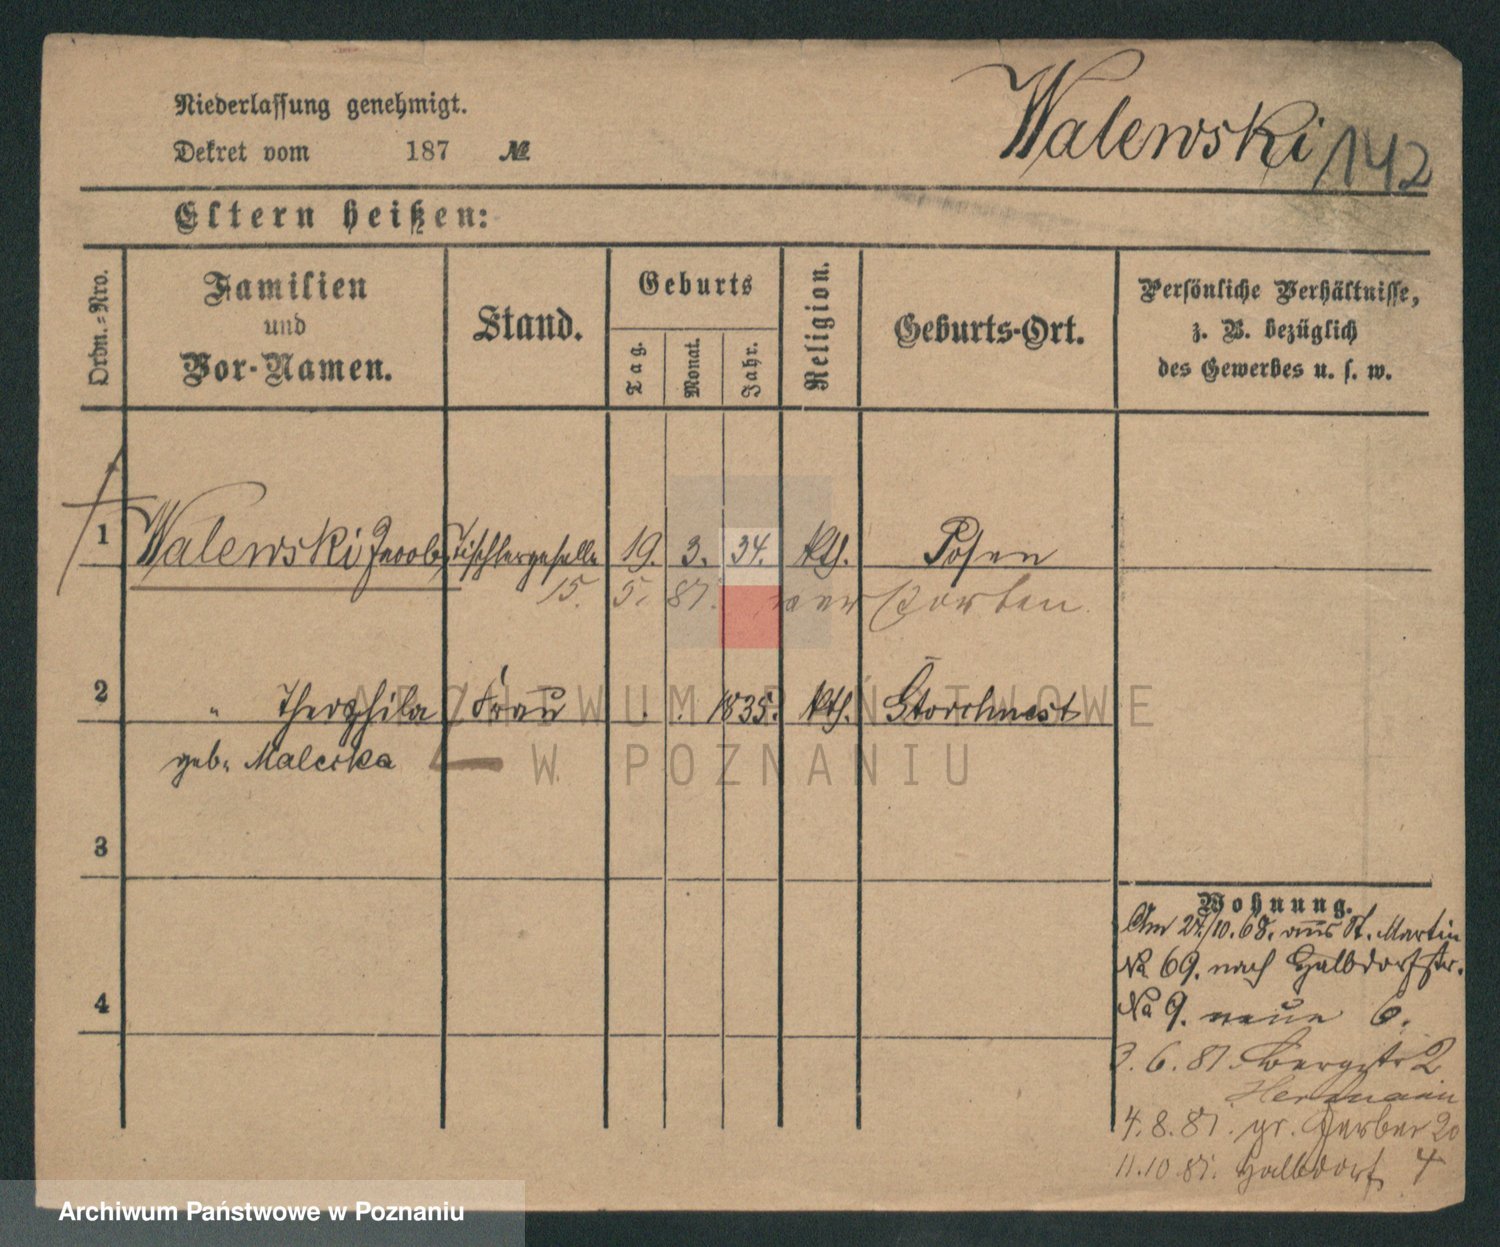 Walewski
142
Niederlassung genehmigt.
Dekret vom 187 №
Eltern heißen:
Ordn.-Nro.
Familien
und
Vor-Namen.
Stand.
Geburts
Tag.
Monat.
Jahr.
Religion.
Geburts-Ort.
Persönliche Verhältnisse,
z. B. bezüglich
des Gewerbes u. s. w.
1 Walewski Jacob, Tischlergeselle 19. 3. 34. kth. Posen
15. 5. 81. verstorben
2 " Theophila Frau 1835. kth. Storchnest
geb. Malecka
3
4
Wohnung.
Am 27./10. 68. aus St. Martin
№ 69. nach Halbdorfstr.
№ 9. neue 6.
3. 6. 81. Bergstr 2
Hermann
4. 8. 81. gr. Gerber 20
11. 10. 81. Halbdorf 4
ARCHIWUM PAŃSTWOWE
W POZNANIU
Archiwum Państwowe w Poznaniu